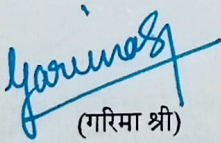 Garimas
(गरिमा श्री)